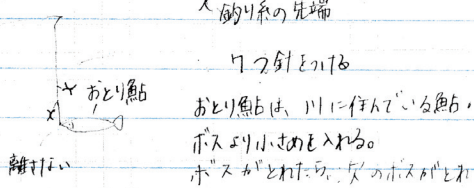 釣り糸の先端
7つ針をつける
おとり鮎
おとり鮎は、川に住んでいる鮎・
ボスより小さめを入れる。
離さない
ボスがとれたら、次のボスがとれ